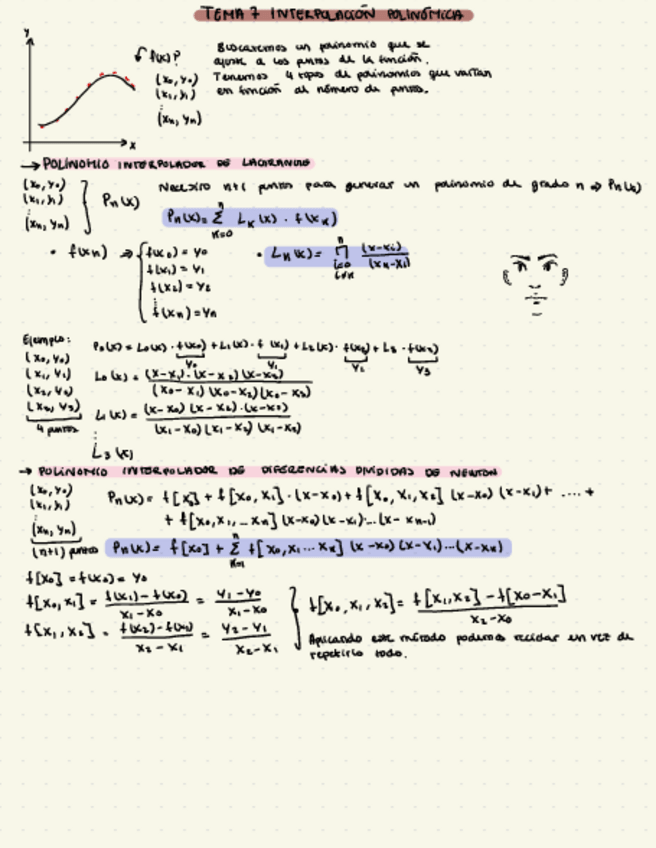 TEMA 7 INTERPOLACIÓN POLINÓMICA
y
x
f(x)?
(x₀, y₀)
(x₁, y₁)
⋮
(xₙ, yₙ)
Buscaremos un polinomio que se
ajuste a los puntos de la función.
Tenemos 4 tipos de polinomios que varían
en función del número de puntos.
→ POLINOMIO INTERPOLADOR DE LAGRANGE
(x₀, y₀)
(x₁, y₁)
⋮
(xₙ, yₙ)
} Pₙ(x)
Necesito n+1 puntos para generar un polinomio de grado n ⇒ Pₙ(x)
Pₙ(x) = Σ_{K=0}^{n} L_K(x) · f(x_K)
• f(xₙ) ⇒ { f(x₀) = y₀
f(x₁) = y₁
f(x₂) = y₂
⋮
f(xₙ) = yₙ
• L_K(x) = ∏_{i=0, i≠K}^{n} (x-xᵢ)/(x_K-xᵢ)
Ejemplo:
(x₀, y₀)
(x₁, y₁)
(x₂, y₂)
(x₃, y₃)
4 puntos
P₃(x) = L₀(x) · f(x₀) + L₁(x) · f(x₁) + L₂(x) · f(x₂) + L₃ · f(x₃)
y₀ y₁ y₂ y₃
L₀(x) = (x-x₁)·(x-x₂)(x-x₃) / (x₀-x₁)(x₀-x₂)(x₀-x₃)
L₁(x) = (x-x₀)(x-x₂)·(x-x₃) / (x₁-x₀)(x₁-x₂)(x₁-x₃)
⋮
L₃(x)
→ POLINOMIO INTERPOLADOR DE DIFERENCIAS DIVIDIDAS DE NEWTON
(x₀, y₀)
(x₁, y₁)
⋮
(xₙ, yₙ)
(n+1) puntos
Pₙ(x) = f[x₀] + f[x₀, x₁]·(x-x₀) + f[x₀, x₁, x₂] (x-x₀)(x-x₁) + .... +
+ f[x₀, x₁, ... xₙ] (x-x₀)(x-x₁)...(x-xₙ₋₁)
Pₙ(x) = f[x₀] + Σ_{K=1}^{n} f[x₀, x₁ ... x_K] (x-x₀)(x-x₁)...(x-x_K)
f[x₀] = f(x₀) = y₀
f[x₀, x₁] = (f(x₁) - f(x₀))/(x₁-x₀) = (y₁-y₀)/(x₁-x₀)
f[x₁, x₂] = (f(x₂) - f(x₁))/(x₂-x₁) = (y₂-y₁)/(x₂-x₁)
} f[x₀, x₁, x₂] = (f[x₁, x₂] - f[x₀-x₁])/(x₂-x₀)
Aplicando este método podemos reciclar en vez de
repetirlo todo.